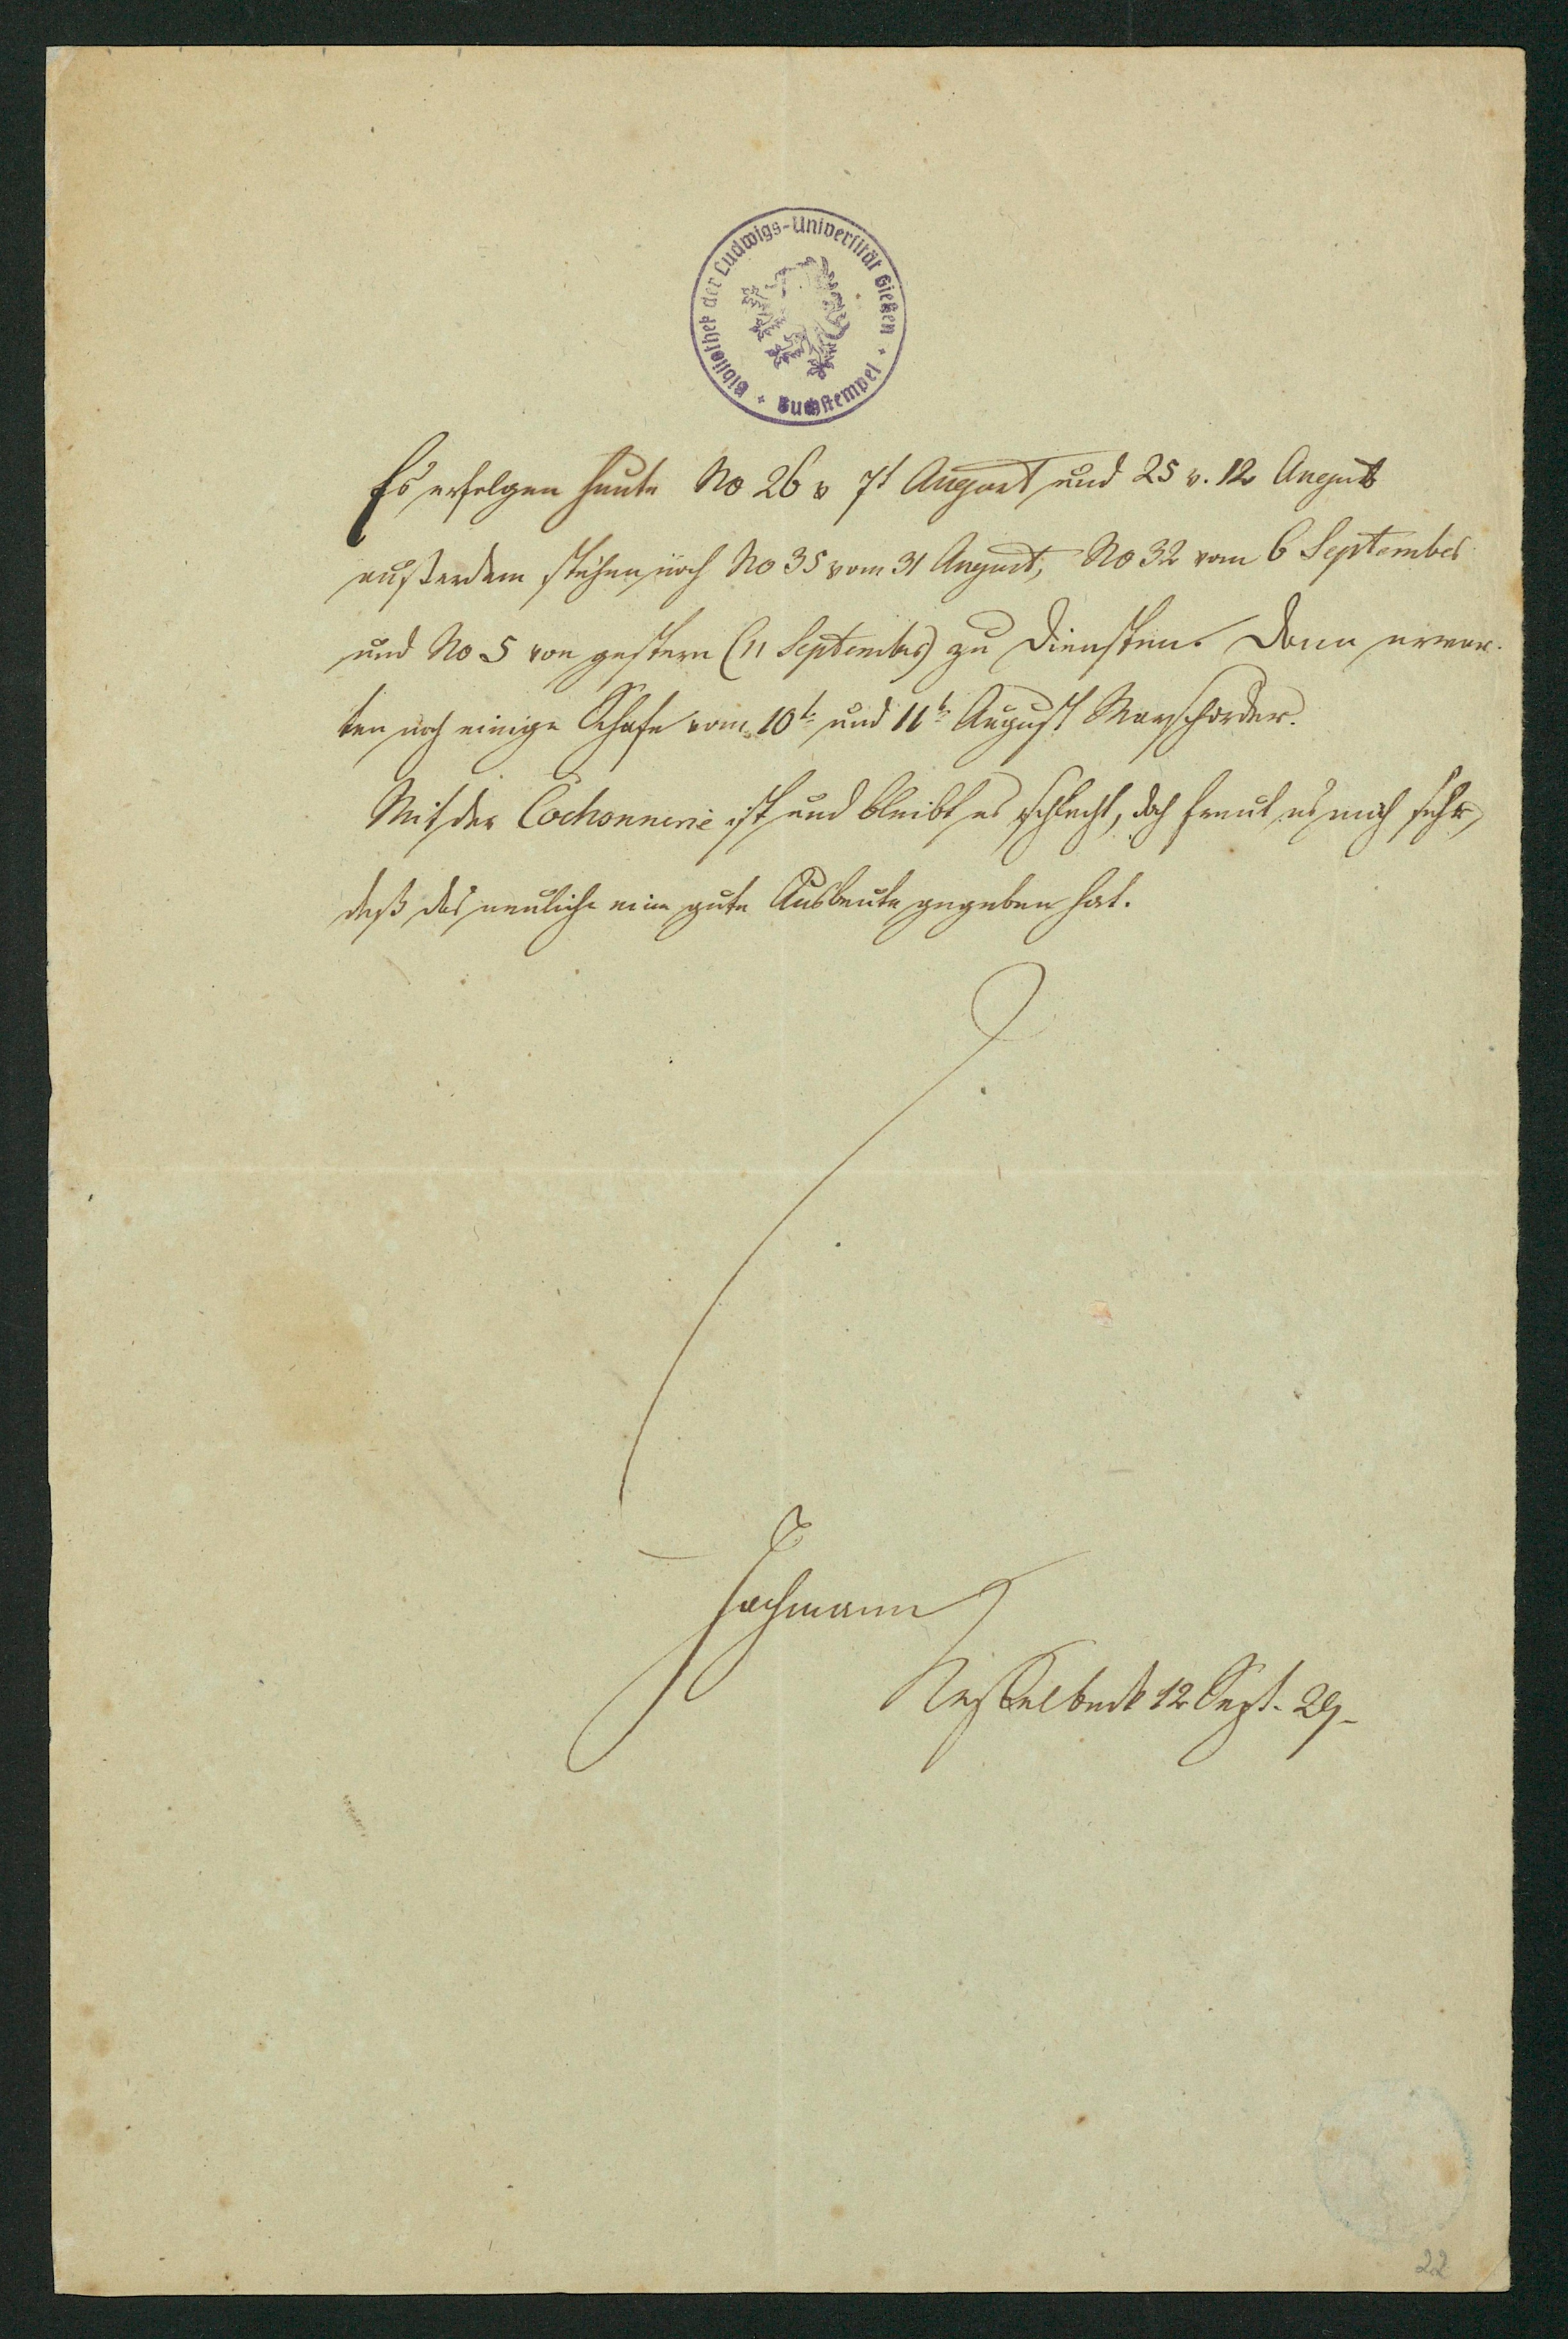 Bibliothek der Ludwigs-Universität Gießen
+ Buchstempel +
Es erfolgen heute No 26 v 7t August und 25 v. 12 August
außerdem stehen noch No 35 vom 31 August, No 32 vom 6 September
und No 5 von gestern (11 September) zu Diensten. Dann erwar-
ten noch einige Schafe vom 10t und 11t August Marschorder.
Mit der Cochonnerie ist und bleibt es schlecht, doch freut es mich sehr,
daß das neuliche eine gute Ausbeute gegeben hat.
Jachmann
12 Sept. 29
22